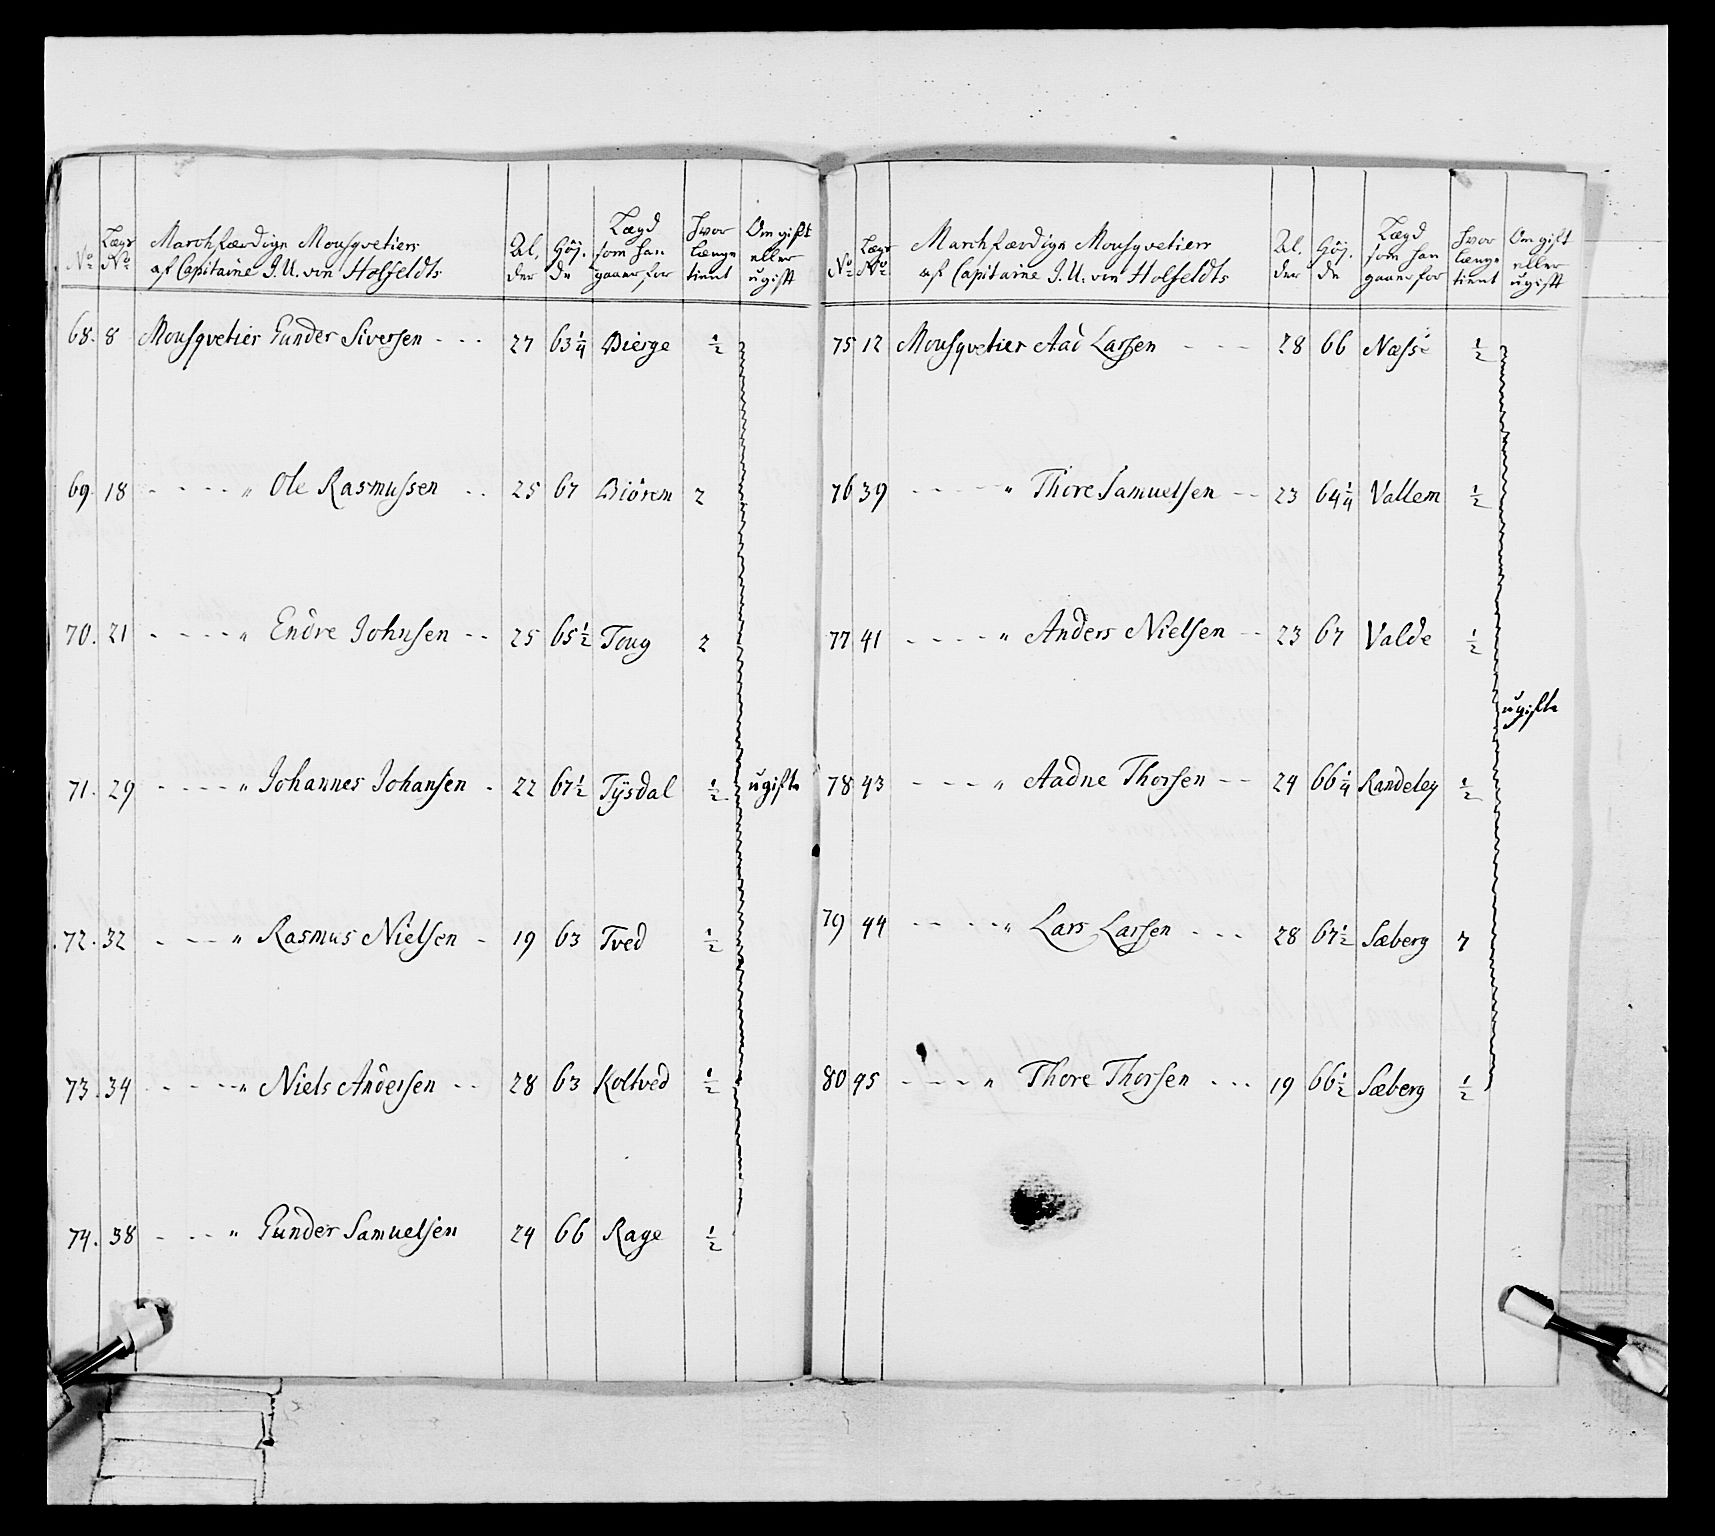 No Lægs No Marchfærdige Mousqvetiers af Capitaine I. U. von Holfeldts Alder Høj. de Lægd som han gaaer for Hvor længe tient Om gift eller ugift
68. 8 Mousqvetier Gunder Siversen - - - 27 63 1/4 Bierge 1/2
69. 18 - - - - " Ole Rasmussen - - 25 67 Biörem 2
70. 21 - - - - " Endre Johnsen - - 25 65 1/2 Toug 2
71. 29 - - - - " Johannes Johansen - 22 67 1/2 Tÿsdal 1/2 ugifte
72. 32 - - - " Rasmus Nielsen - 19 63 Tved 1/2
73. 34 - - - - " Niels Andersen - - 28 63 Koltved 1/2
74. 38 - - - " Gunder Samuelsen 24 66 Rage 1/2
No Lægs No Marchfærdige Mousqvetierr af Capitaine I. U. von Holfeldts Alder Høj. de Lægd som han gaaer for Hvor længe tient Om gift eller ugift
75 12 Mousqvetier Aad Larsen - - - 28 66 Næss 1/2
76 39 - - - - " Thore Samuelsen - - 23 64 1/4 Vallem 1/2
77 41 - - - - " Anders Nielsen - - 23 67 Valde 1/2
ugifte
78 43 - - - " Aadne Thorsen - - 24 66 1/4 Randeley 1/2
79 44 - - - - " Lars Larsen - - - 28 67 1/2 Sæberg 7
80 45 - - - - " Thore Thorsen - - - 19 66 1/2 Sæberg 1/2